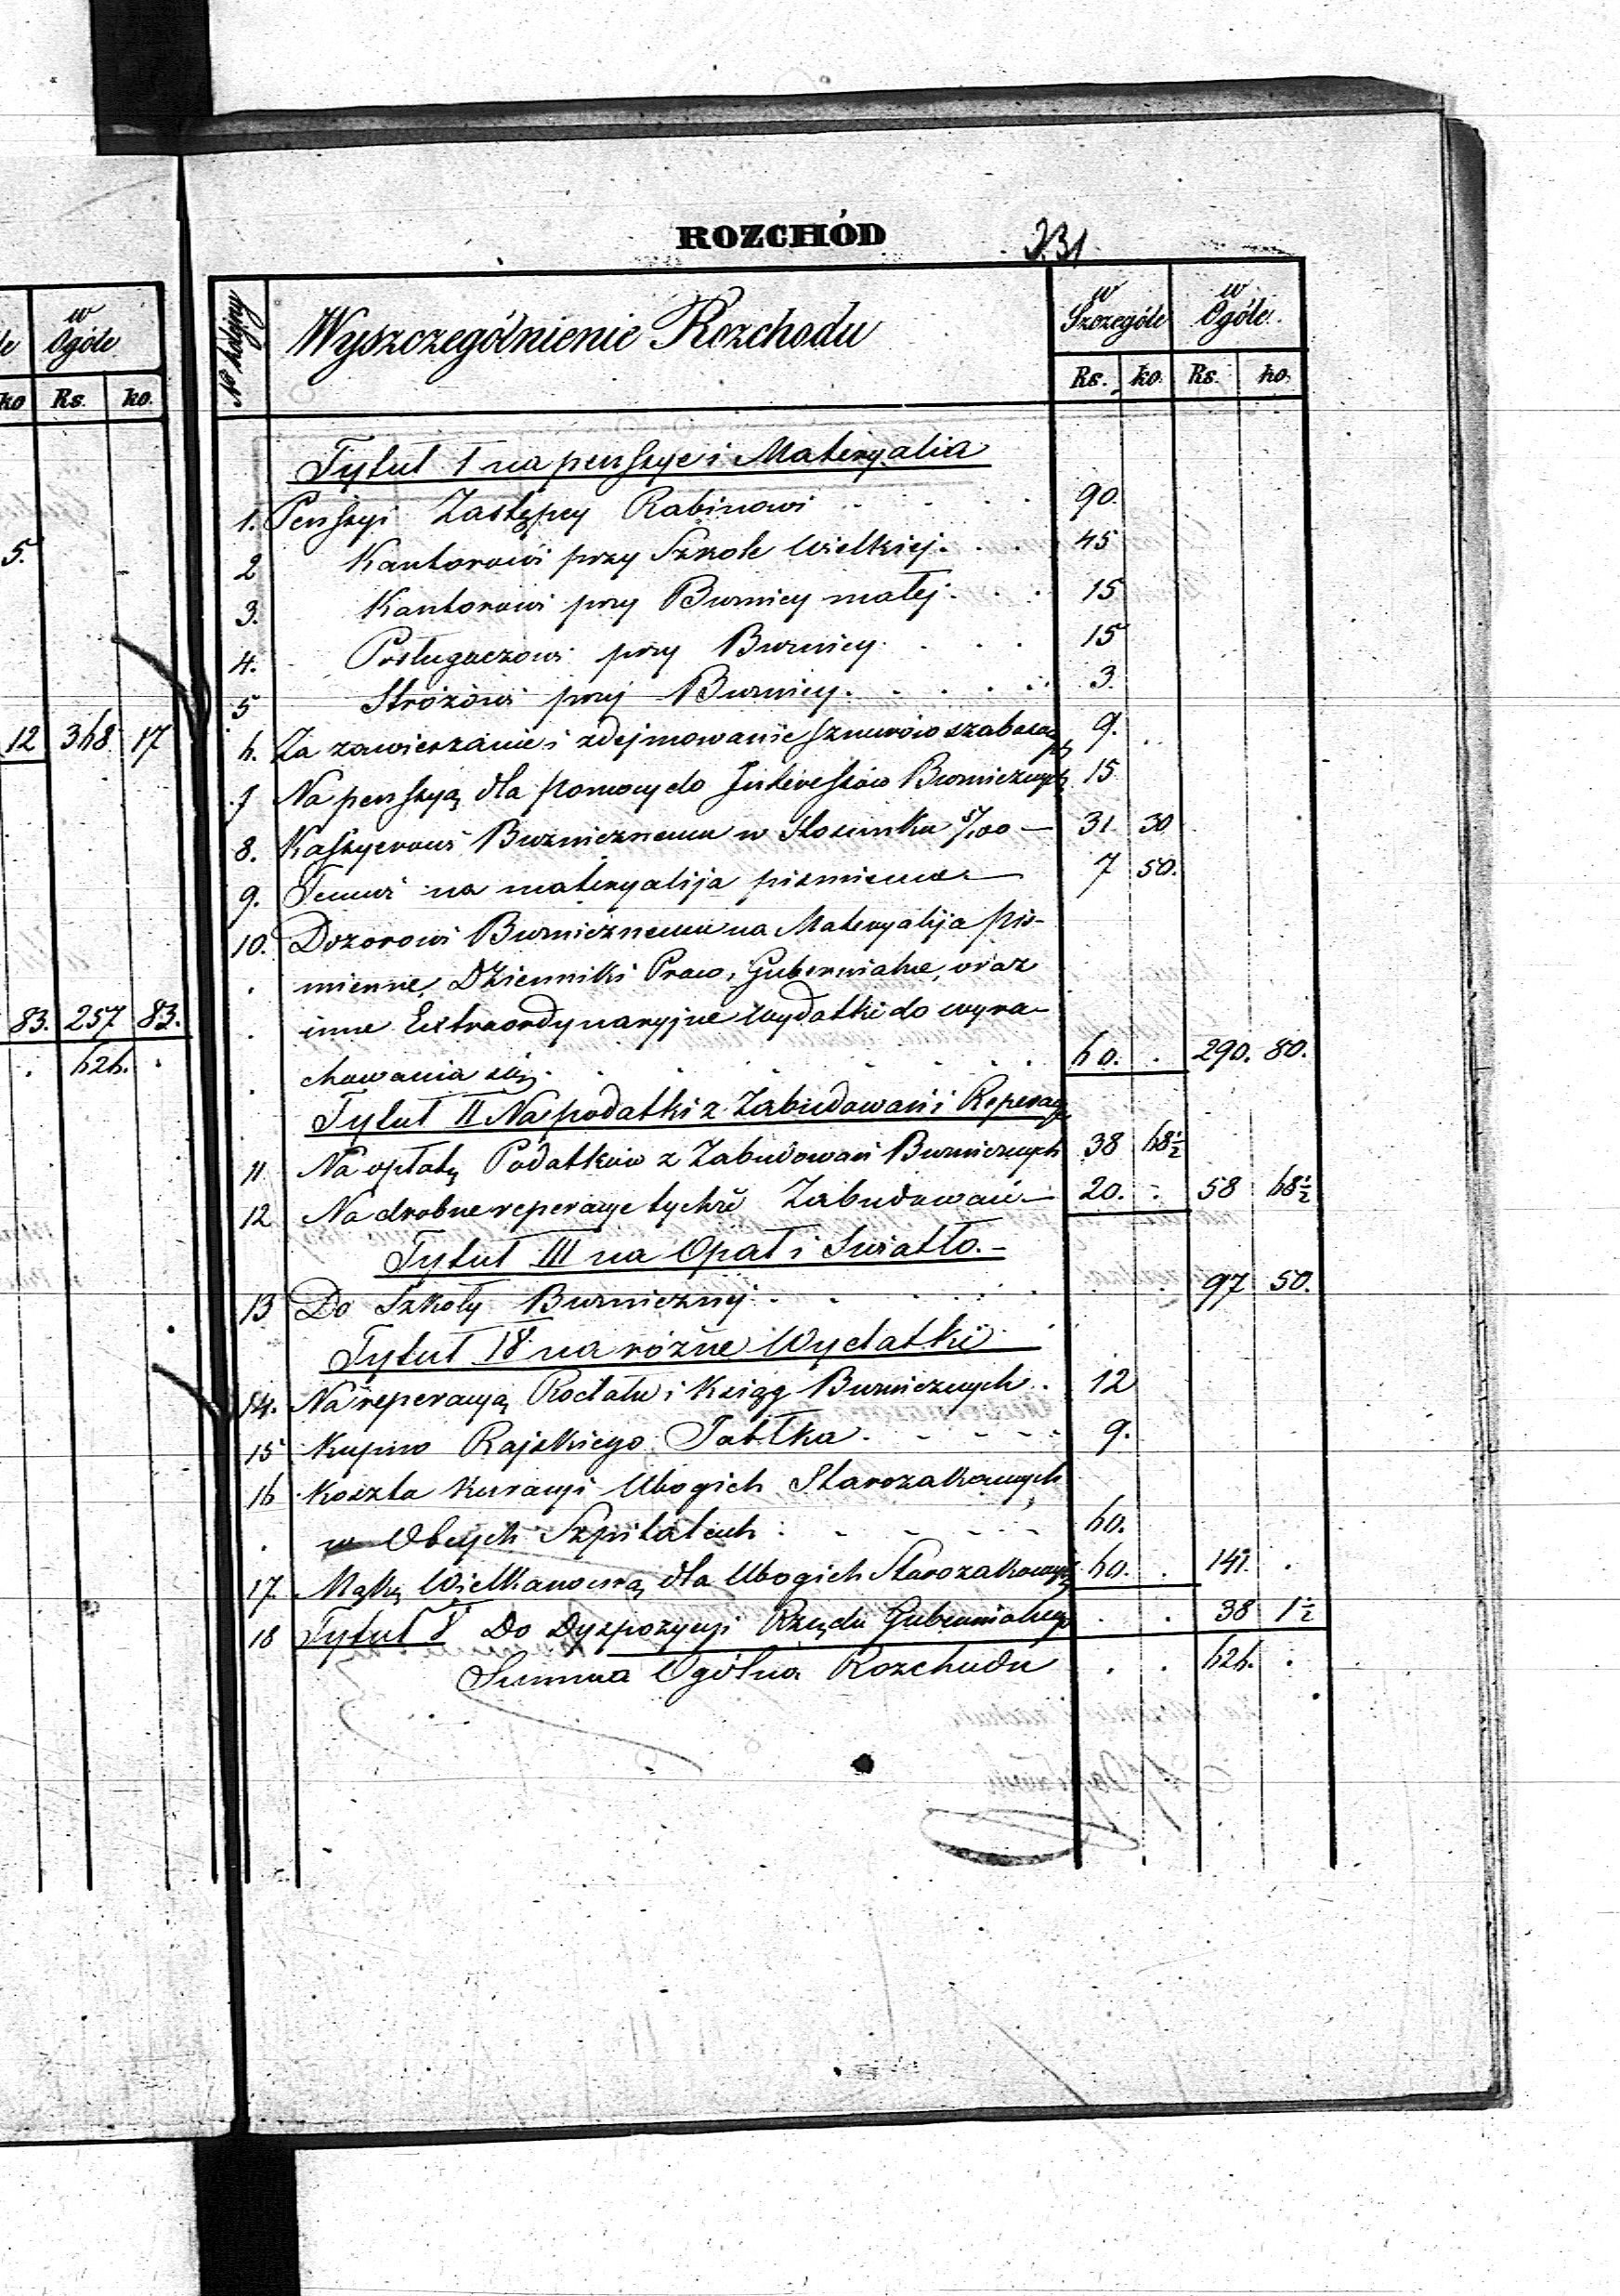 ROZCHÓD
231
w Ogóle
Rs. ko.
ko
5.
12 368. 17
83. 257 83.
. 626. .
№ kolejny
Wyszczególnienie Rozchodu
w Szczególe
w Ogóle.
Rs. ko. Rs. ko.
Tytuł I na penssye i Materyalia
1. Penssyi Zastępcy Rabinowi . . . . 90.
2 Kantorowi przy Szkole Wielkiej . . . 45
3. Kantorowi przy Bużnicy małej . . . 15
4. Posługaczowi przy Bużnicy . . . 15
5 Stróżowi przy Bużnicy . . . . . 3.
6. Za zawieszanie i zdejmowanie sznurów szabasowych 9. ..
7 Na penssyą dla pomocy do Interessów Bużniczych 15
8. Kassyerowi Bużnicznemu w stosunku 5/100 — 31. 30
9. Temuż na materyalija piśmienne — 7 50.
10. Dozorowi Bużnicznemu na Materyalija piś-
. mienne, Dzienniki Praw, Gubernialne, oraz
. inne Extraordynaryjne wydatki do wyra-
. chowania się . . . . . . 60. . 290. 80.
Tytuł II Na podatki z Zabudowań i Reperacye
11 Na opłatę Podatków z Zabudowań Bużniczych 38 68½
12 Na drobne reperacye tychże Zabudowań — 20. . 58 68½
Tytuł III na Opał i Światło. —
13 Do Szkoły Bużnicznej . . . . . . 97 50.
Tytuł IV na różne Wydatki
14. Na reperacyą Rodału i Ksiąg Bużniczych . 12
15 Kupno Rajskiego Jabłka . - - - - 9.
16 Koszta Kuracyi Ubogich Starozakonnych
. w Obcych Szpitalach : - - - - 60.
17. Mąkę Wielkanocną dla Ubogich Starozakonnych 60. . 141. .
18 Tytuł V Do Dyspozycyi Rządu Gubernialnego . . 38 1½
Summa Ogólna Rozchodu . . 626. .